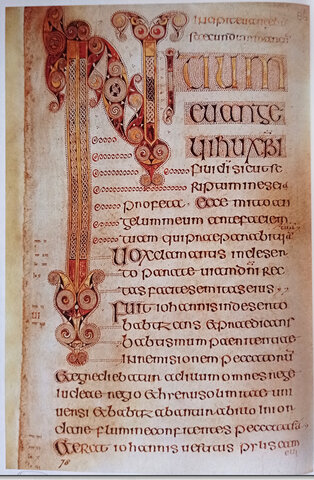 86
Incipit euangeli
secundum
INITIUM
euange
lii ihu xpi
filii di sicut sc
riptum in esaia
profeta Ecce mitto an
gelum meum ante faciem
tuam qui praeparabit uia
tuam
Uox clamantis in desert
to parate uiam dni rec
tas facite semitas eius
Fuit iohannis in deserto
babtizans & praedicans
babtismum paenitentiae
in remisionem peccatorum
Et egrediebatur ad illum omnes
iudeae regio & hierusolimitae uni
uersi & babtizabantur ab illo in ior
dane flumine confitentes peccata sua
Et erat iohannis uestitus pylis cam
elli
78